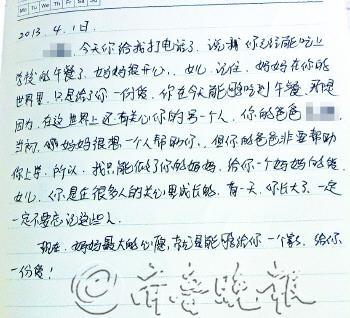 Mo Tu We Th Fr Sa Su
2013.4.1日.
,今天你给我打电话了,说你已经能吃上
学校的午餐了,妈妈很开心,女儿,记住,妈妈在你的
世界里,只是给了你一份爱,你在今天能够吃到午餐,那是
因为,在这世界上还有关心你的另一个人,你的爸爸
当初,妈妈很想一个人帮助你,但你的爸爸非要帮助
你上学,所以,我只能做了你的妈妈,给你一个妈妈的爱,
女儿,你是在很多人的关心里成长的,有一天,你长大了,一定
一定不要忘记这些人.
现在,妈妈最大的心愿,就是能够给你一个家,给你
一份爱!
齐鲁晚报